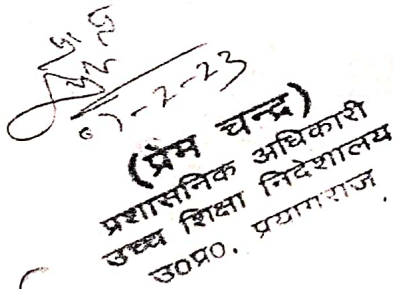 07-2-23
(प्रेम चन्द्र)
प्रशासनिक अधिकारी
उच्च शिक्षा निदेशालय
उ०प्र०. प्रयागराज.